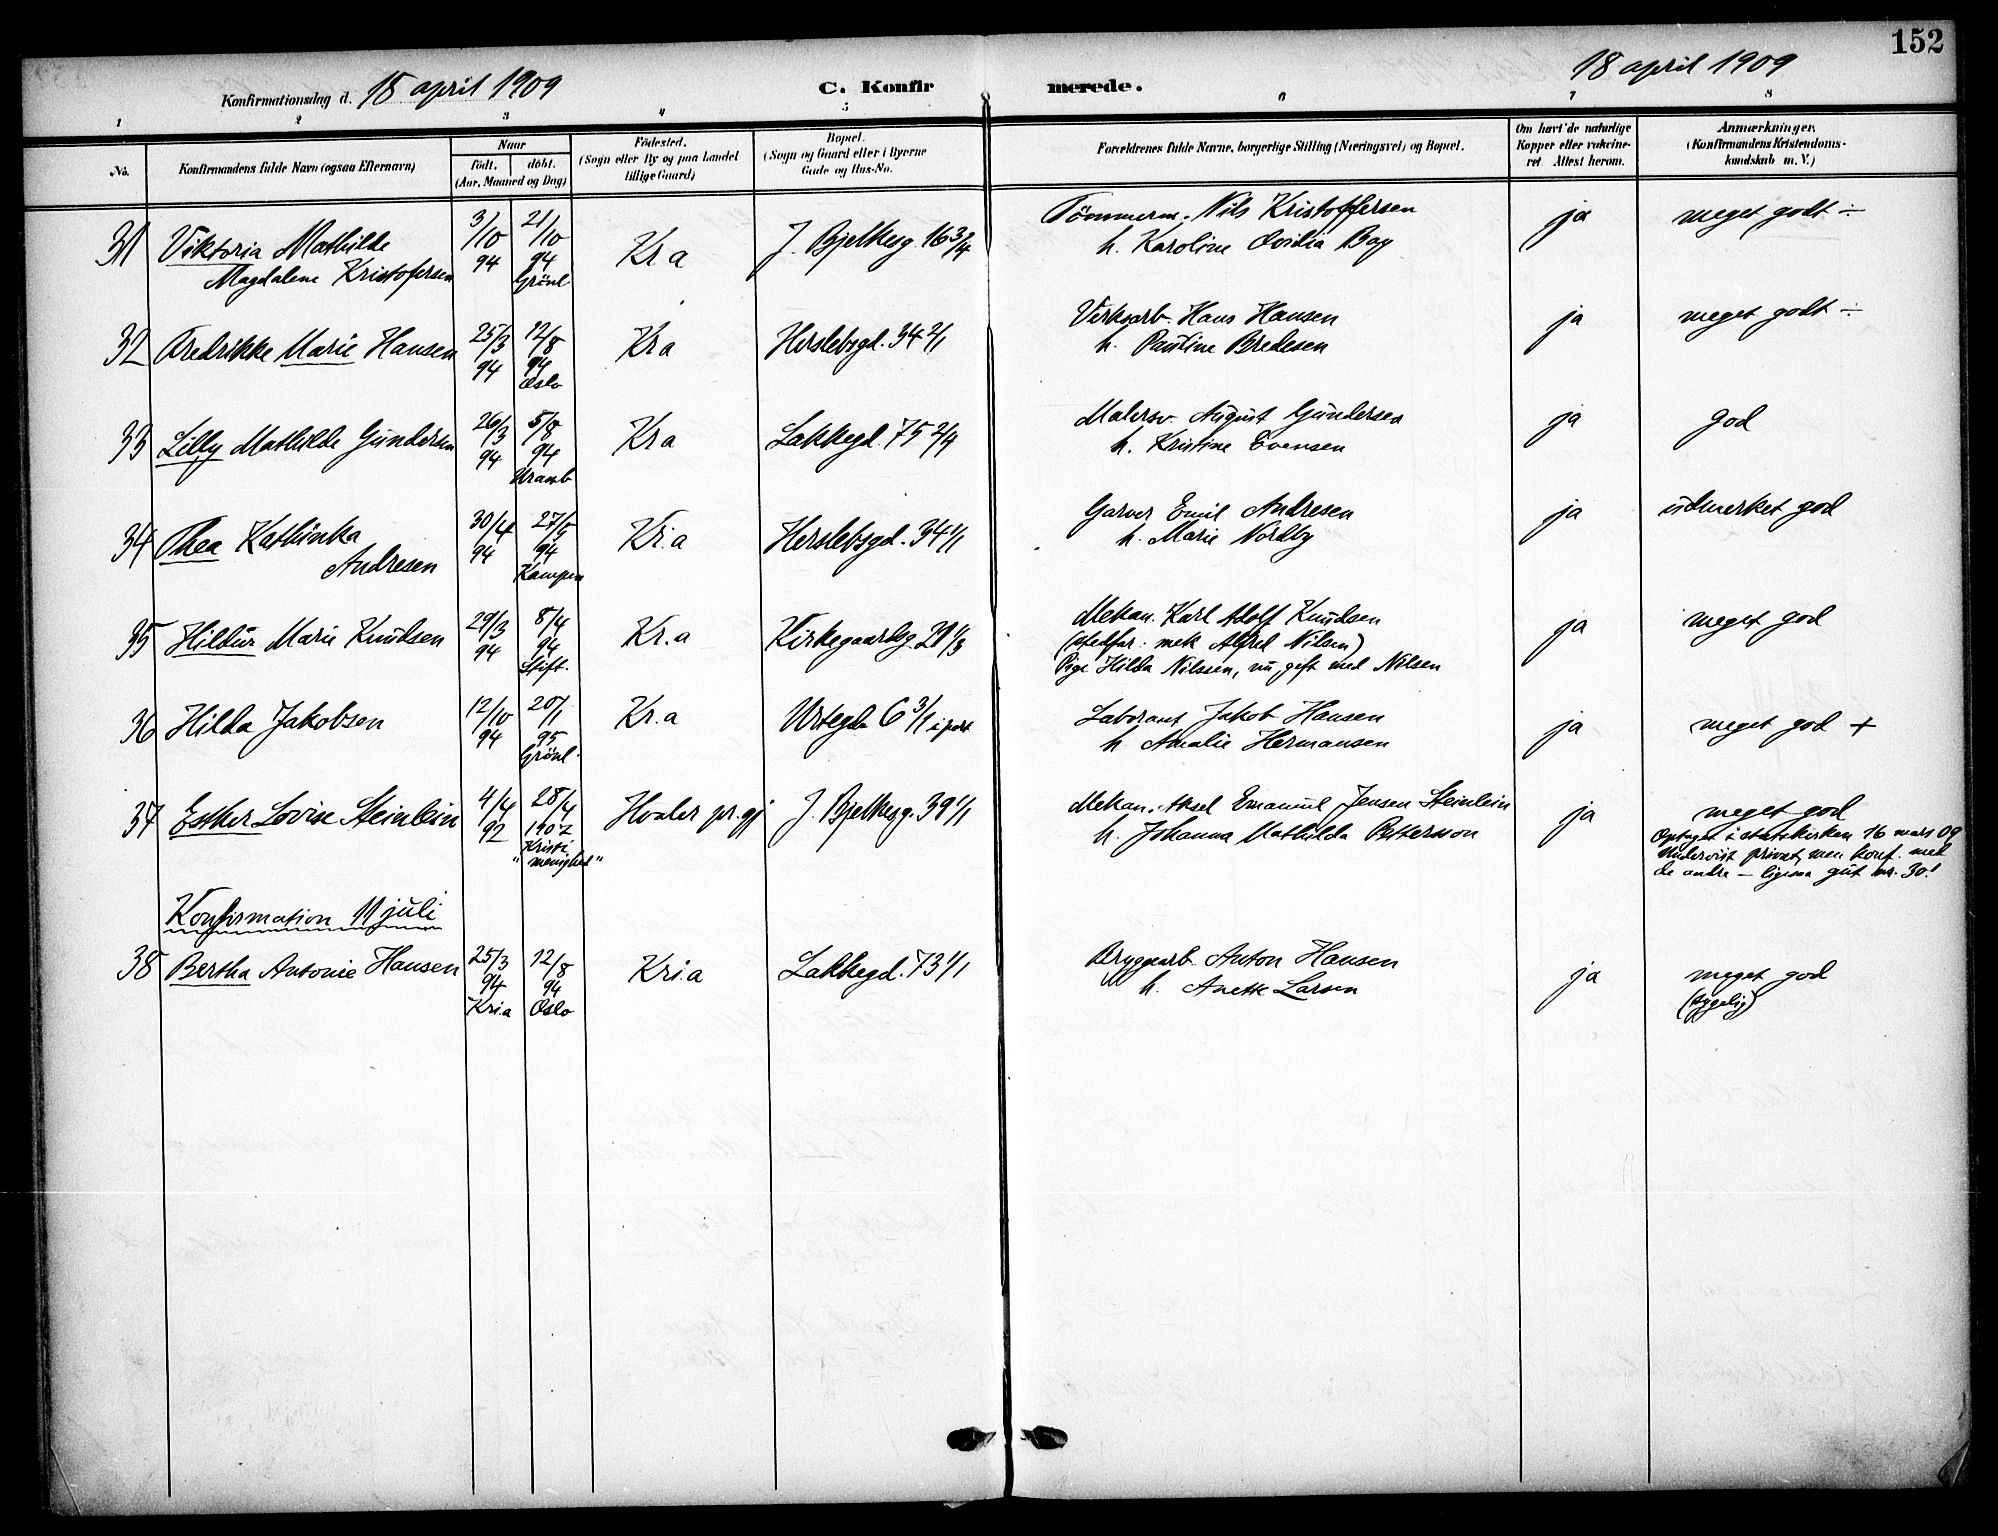 152
Konfirmationsdag d. 18 april 1909
C. Konfirmerede.
18 april 1909
1 2 3 4 5 6 7 8
No.
Konfirmandens fulde Navn (ogsaa Efternavn)
Naar
födt. döbt.
(Aar, Maaned og Dag)
Födested.
(Sogn eller By og paa Landet
tillige Gaard.)
Bopæl.
(Sogn og Gaard eller i Byerne
Gade og Hus-No.
Forældrenes fulde Navne, borgerlige Stilling (Næringsvei) og Bopæl.
Om havt de naturlige
Kopper eller vakcine-
ret Attest herom.
Anmærkninger.
(Konfirmandens Kristendoms-
kundskab m. V.)
31 Viktoria Mathilde 3/10 21/10 Kr a J. Bjelkesg. 16 3/4 Tömmerm. Nils Kristoffersen ja meget godt ÷
Magdalene Kristofersen 94 94 h. Karoline Ovidia Bay
Grönl.
32 Fredrikke Marie Hansen 25/3 12/8 Kr a Herslebsgd. 34 2/1 Verksarb. Hans Hansen ja meget godt ÷
94 94 h. Pauline Bredesen
Oslo
33 Lilly Mathilde Gundersen 26/3 5/8 Kr a Lakkegd. 75 2/4 Malersv. August Gundersen ja god
94 94 h. Kristine Evensen
Uranb
34 Thea Kathinka 30/4 27/5 Kr.a Herslebsgd. 34 1/1 Garver Emil Andresen ja udmerket god
Andresen 94 94 h. Marie Nordby
Kampen
35 Hildur Marie Knudsen 29/3 8/4 Kr.a Kirkegaardsg. 21 1/3 Mekan. Karl Adolf Knudsen ja meget god
94 94 (stedfar: mek Alfred Nilsen)
Stift. Pige Hilda Nilssen, nu gift med Nilsen
36 Hilda Jakobsen 12/10 20/1 Kr.a Urtegda 6 3/1 i port Laborant Jakob Hansen ja meget god +
94 95 h Amalie Hermansen
Grönl.
37 Esther Lovise Steinlein 4/4 28/4 Hvaler pr.gj J. Bjelkesg. 39 1/1 Mekan. Aksel Emanuel Jensen Steinlein ja meget god
92 1907 h. Johanna Mathilda Pettersson Optaget i statskirken 16 mars 09
Kristi Undervist privat, men konf. med
"menighed" de andre – ligesaa gut nr. 30!
Konfirmation 11 juli
38 Bertha Antonie Hansen 25/3 12/8 Kri.a Lakkegd. 73 1/1 Bryggearb. Anton Hansen ja meget god
94 94 h. Anette Larsen (sygelig)
Kri.a Oslo